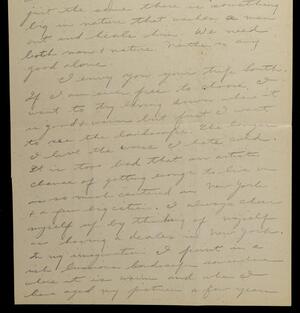 just the same there is something
big in nature that washes a man
out and heals him. We need
both man & nature. Neither is any
good alone.
I envy you your trip south.
If I am ever free to choose, I
want to try living down where it
is good & warm but first I want
to see the landscape. The longer
I live the more I hate cold.
It is too bad that an artist's
chance of getting enough to live on
is so much centered in New York
& a few big cities. I always cheer
myself up by thinking of myself
as having a dealer in New York.
In my imagination I paint in a
rich luminous landscape somewhere
where it is warm and when I
have aged my pictures a few years